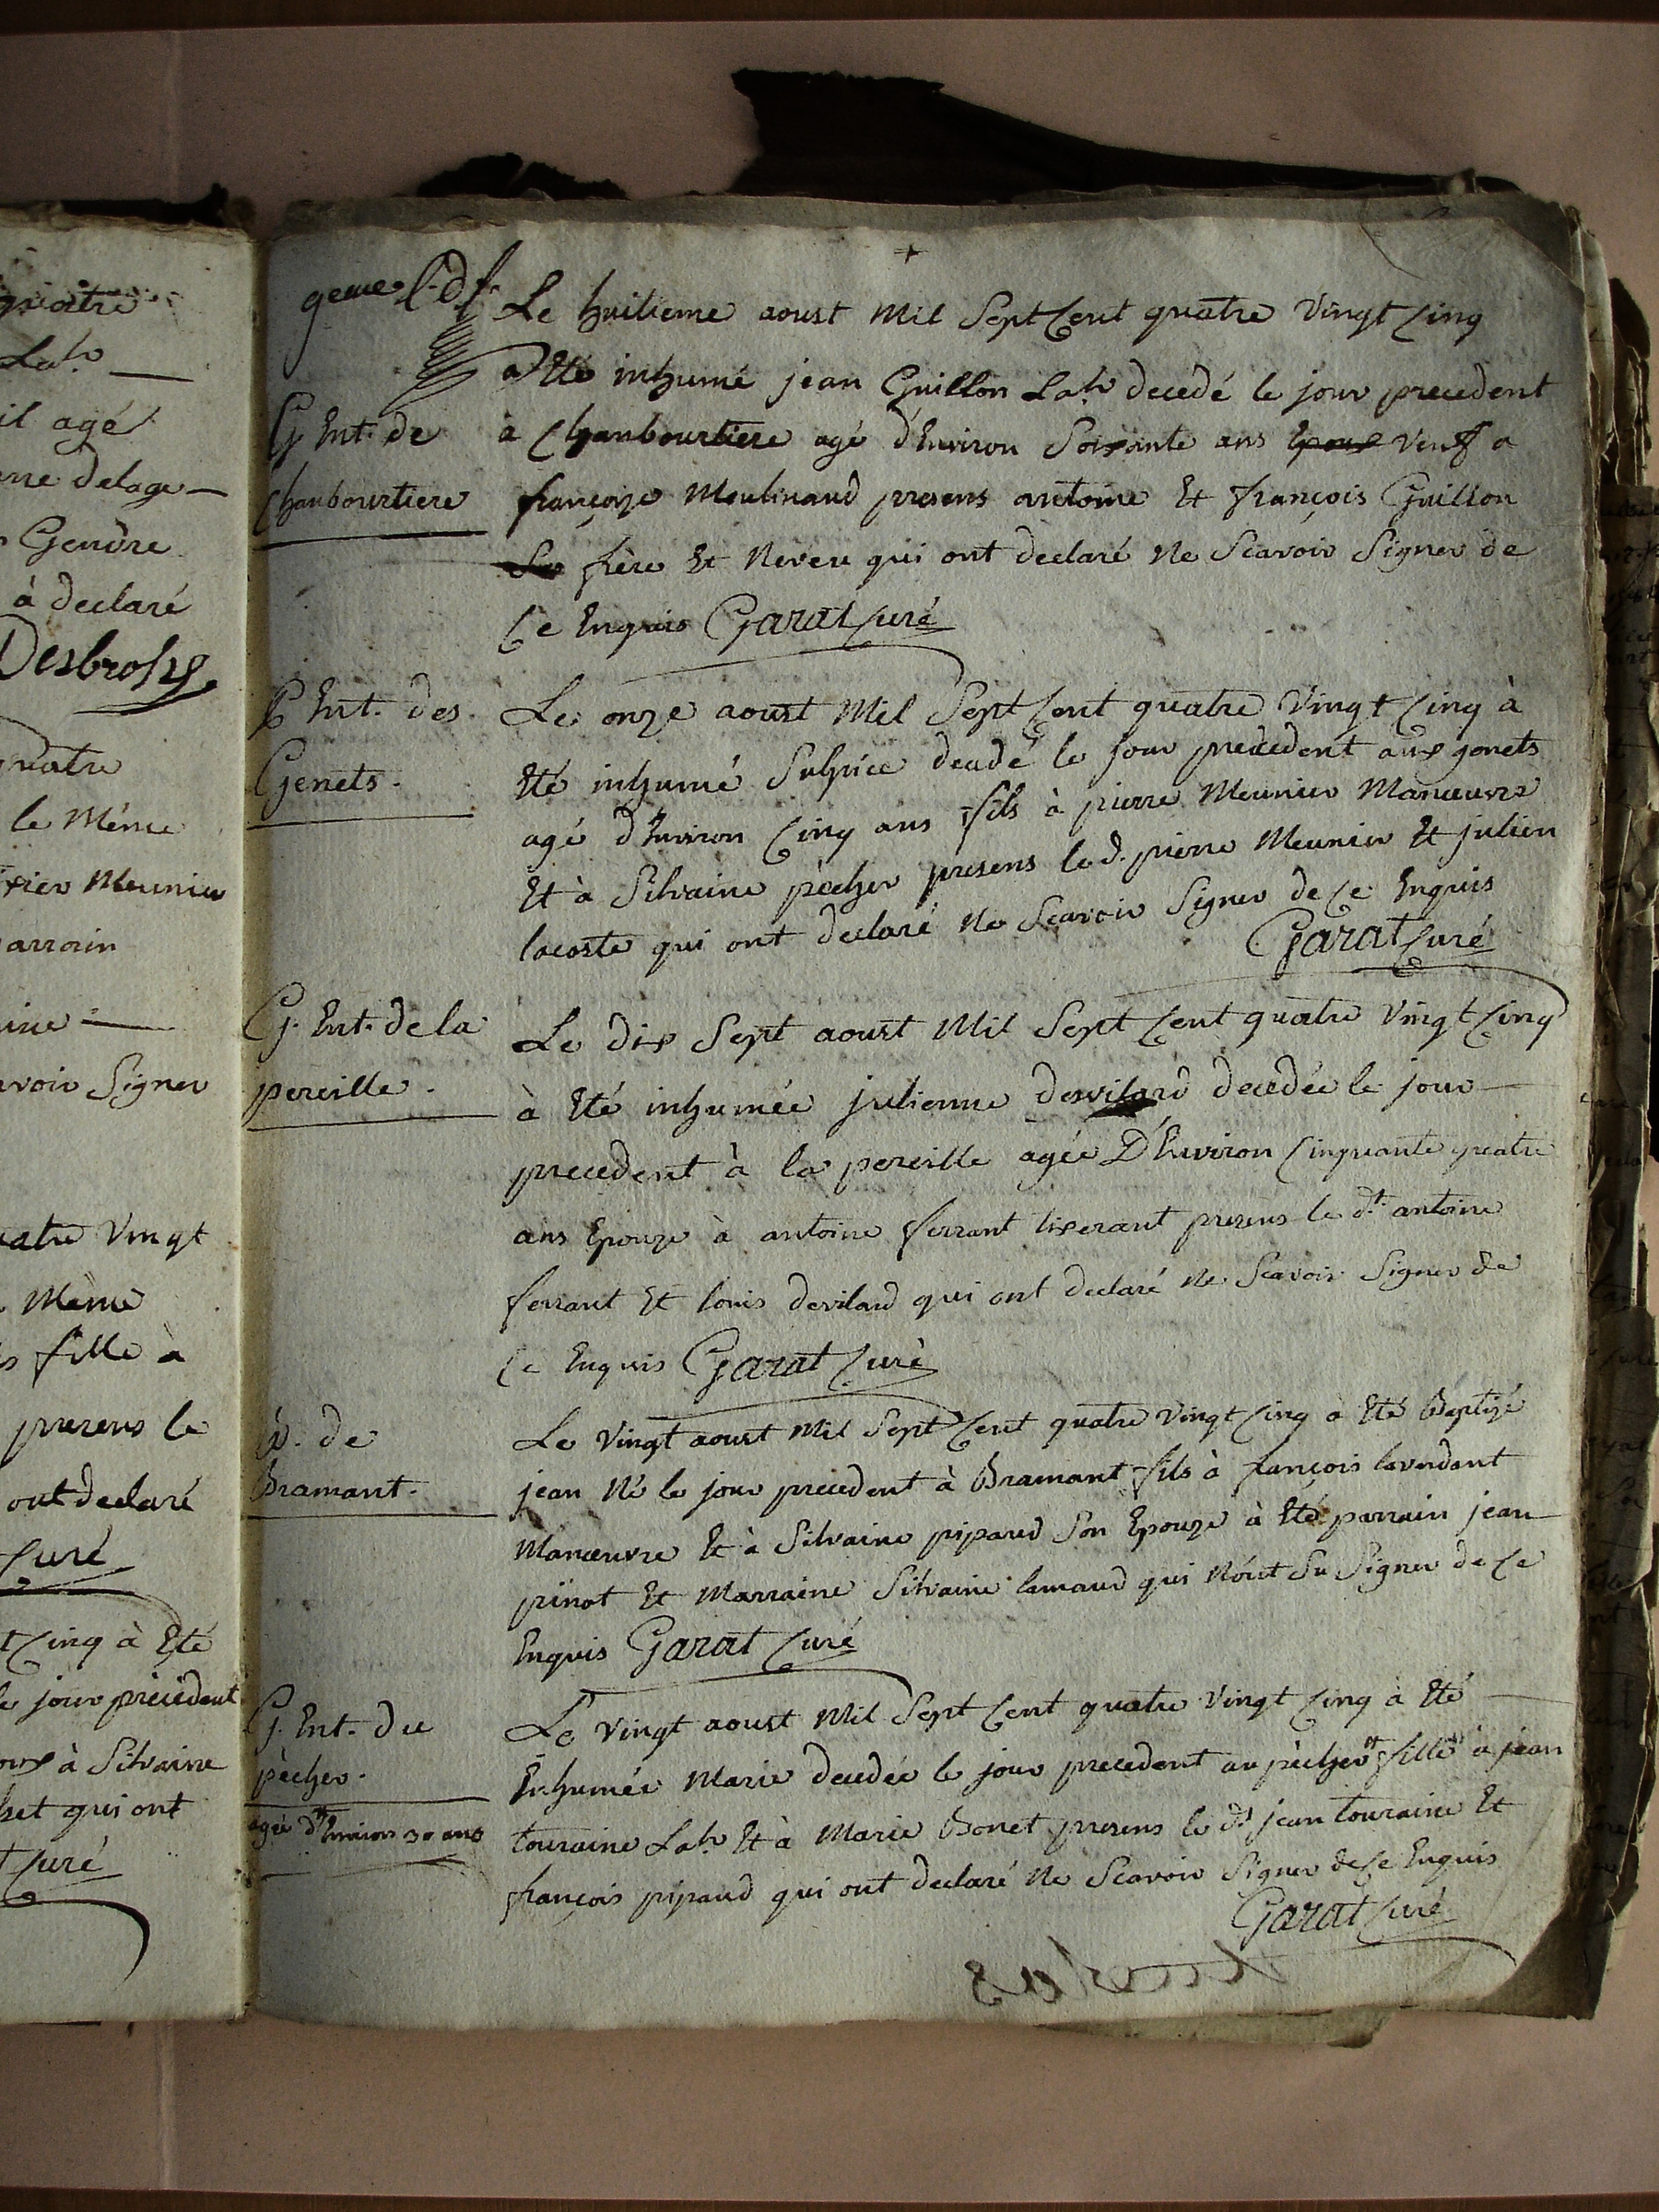 quatre
Labr
il agé
erre delage
Gendre
à declaré
Desbrosse
quatre
le Même
Meunier
parrain
avoir Signer
quatre Vingt
Même
fille à
presens le
ont declaré
Curé
Cinq à Eté
le jour précédent
à Silvaine
qui ont
Curé
9eme
Le huitieme aoust Mil Sept Cent quatre Vingt Cinq
a Eté inhumé jean Guillon Labr decedé le jour precedent
à Chanbourtiere agé d'Environ Soixante ans Epoux Veuf a
françoize Moulinaud presens antoine Et françois Guillon
frère Et Neveu qui ont declaré Ne Scavoir Signer de
Ce Enquis Garat Curé
G Ent. de
Chanbourtiere
Le onze aoust Mil Sept Cent quatre Vingt Cinq à
Eté inhumé Sulpice decedé le jour precedent aux genets
agé d'Environ Cinq ans fils à pierre Meunier Manœuvre
Et à Silvaine pècher presens led. pierre Meunier Et julien
lacoste qui ont declaré Ne Scavoir Signer de Ce Enquis
Garat Curé
Ent. des
Genets.
Le dix Sept aoust Mil Sept Cent quatre Vingt Cinq
à Eté inhumée julienne decedée le jour
precedent à la pereille agée D'Environ Cinquante quatre
ans Epouze à antoine ferrant tixerant presens le dt. antoine
ferrant Et louis devilard qui ont declaré Ne Scavoir Signer de
Ce Enquis Garat Curé
G. Ent. de la
pereille.
Le Vingt aoust Mil Sept Cent quatre Vingt Cinq a Eté Baptizé
jean Né le jour precedent à Bramant fils à françois laverdant
Manœuvre Et à Silvaine pipaud Son Epouze à Eté parrain jean
pinot Et Marraine Silvaine lamaud qui N'ont Su Signer de Ce
Enquis Garat Curé
B. de
Bramant.
Le Vingt aoust Mil Sept Cent quatre Vingt Cinq à Eté
Inhumée Marie decedée le jour precedent au pècher fille à jean
touraine Labr Et à Marie Bonet presens le dt jean touraine Et
françois pipaud qui ont declaré Ne Scavoir Signer de Ce Enquis
Garat Curé
G. Ent. du
pècher.
agée d'Environ 30 ans